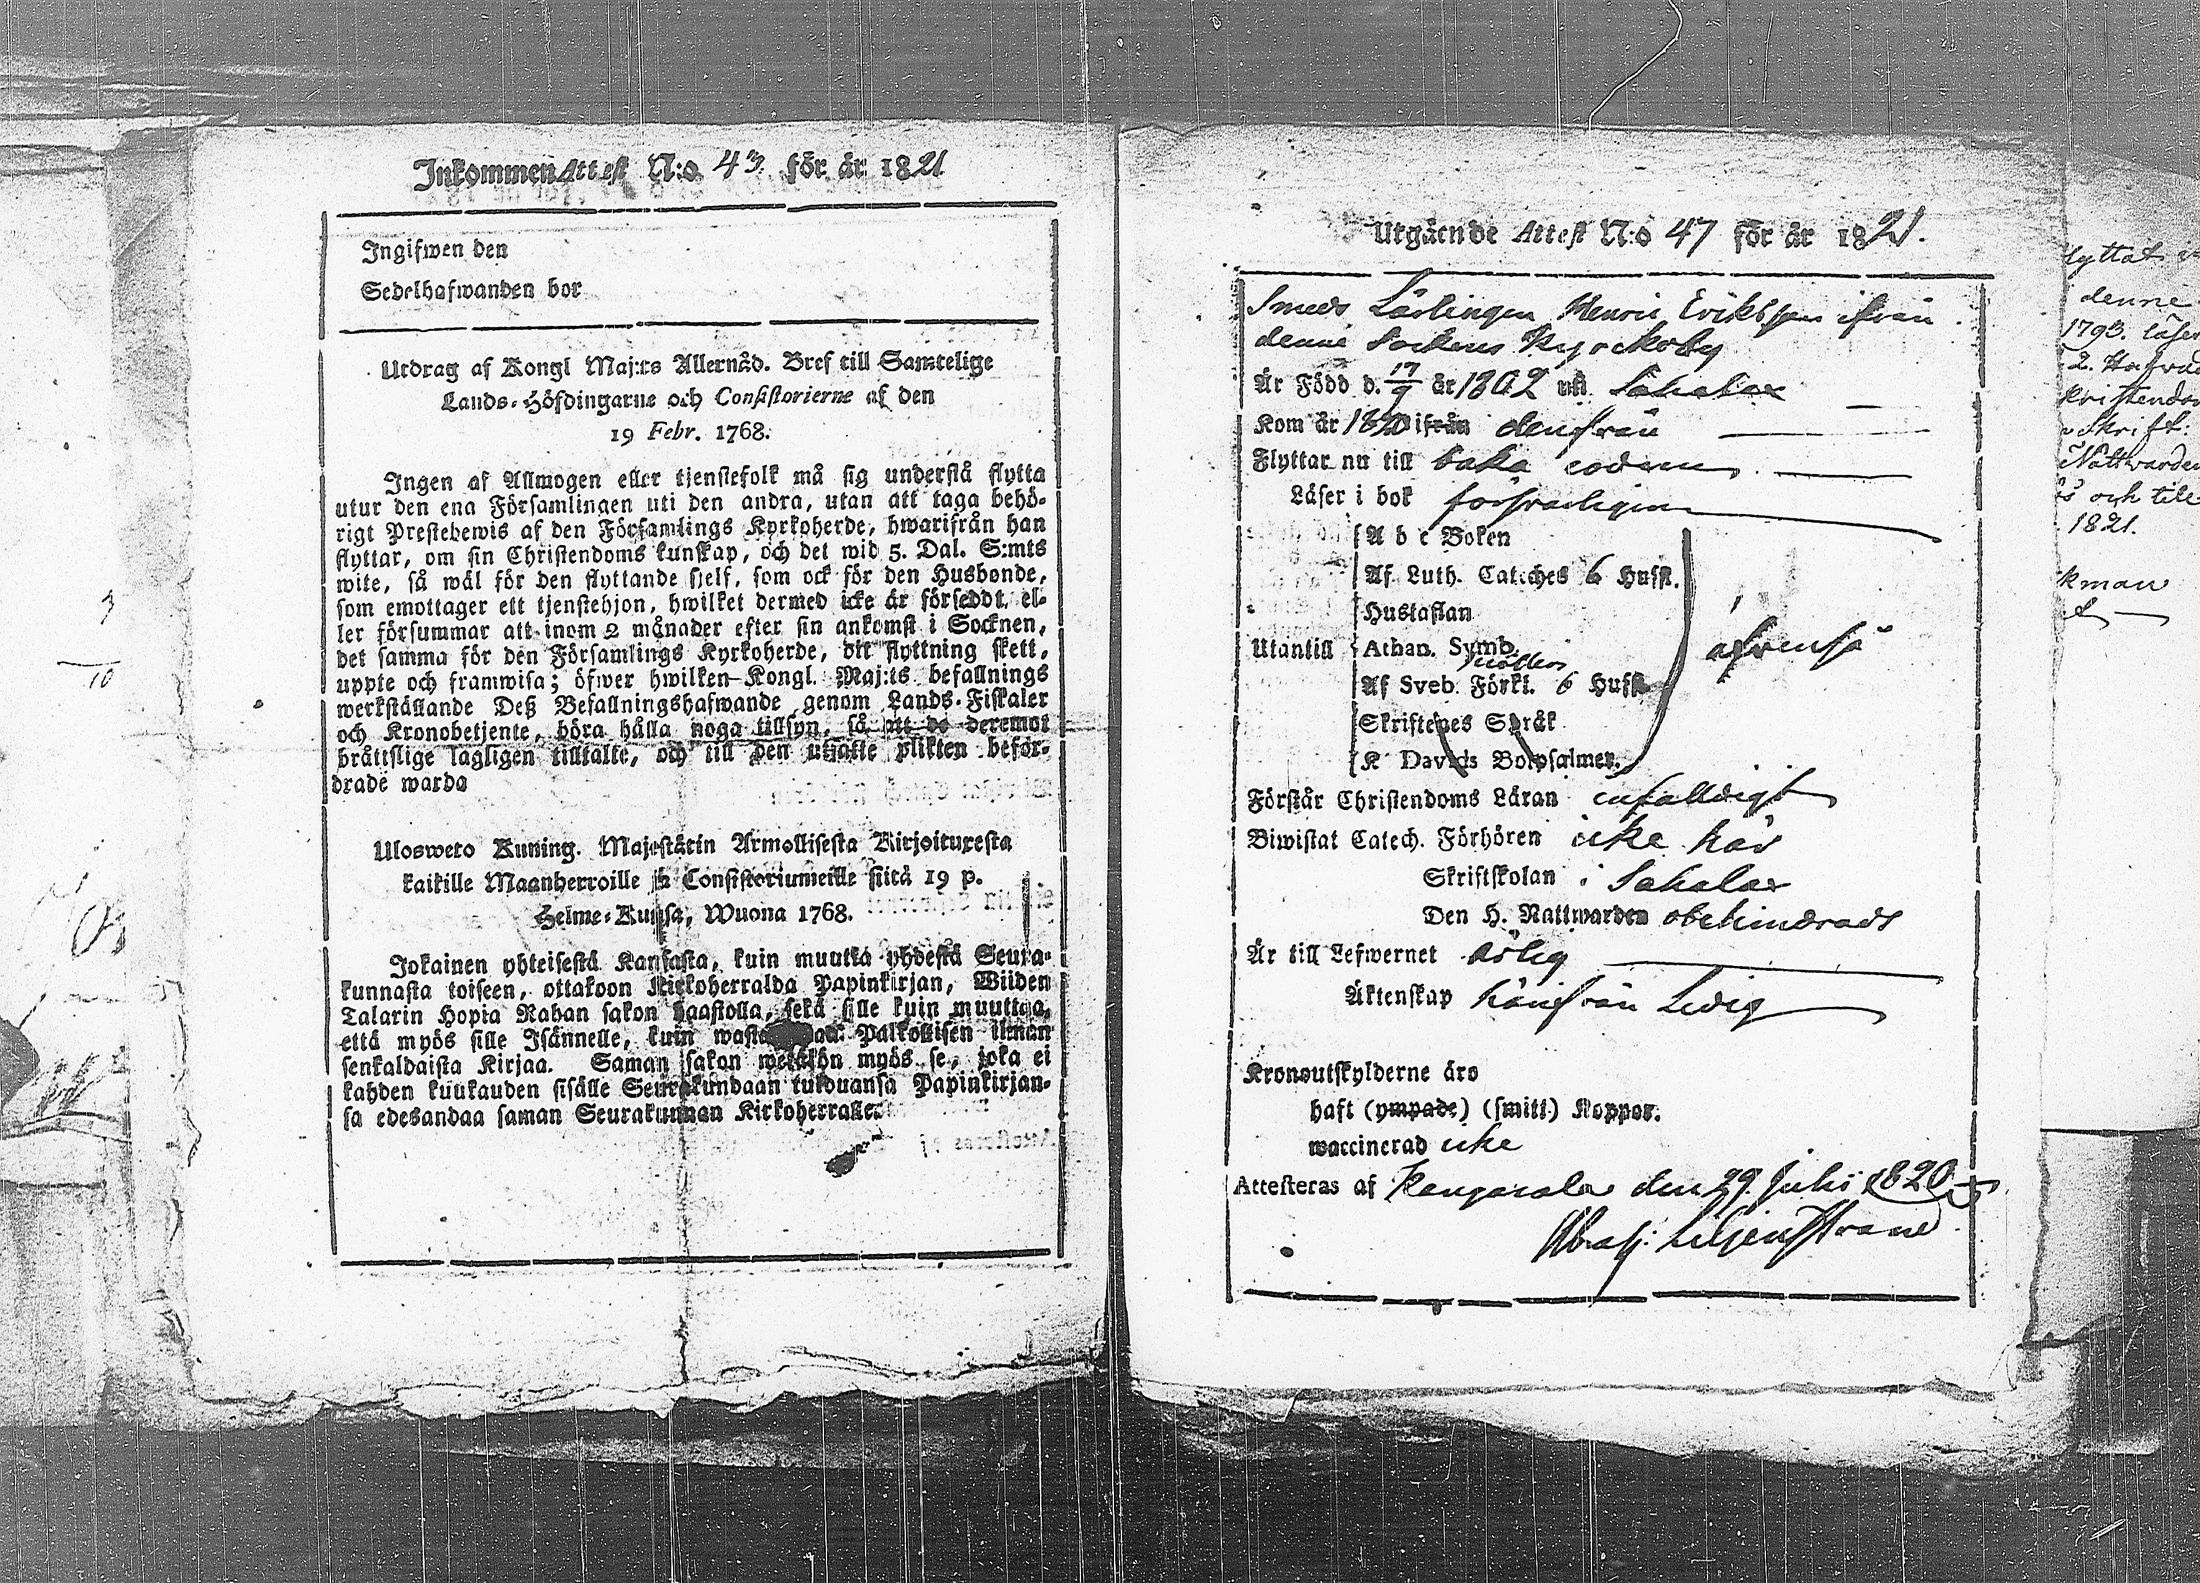 Inkommen Attest N:o 43. för år 1821
Ingifwen den
Sedelhafwanden bor
Utdrag af Kongl Maj:ts Allernåd. Bref till Samtelige
Lands-Höfdingarne och Consistorierne af den
19 Febr. 1768.
Ingen af Allmogen eller tjenstefolk må sig understå flytta
utur den ena Församlingen uti den andra, utan att taga behö-
rigt Prestebewis af den Församlings Kyrkoherde, hwarifrån han
flyttar, om sin Christendoms kunskap, och det wid 5. Dal. S:mts
wite, så wäl för den flyttande sjelf, som ock för den Husbonde,
som emottager ett tjenstehjon, hwilket dermed icke är försedt, el-
ler försummar att inom 2 månader efter sin ankomst i Socknen,
det samma för den Församlings Kyrkoherde, dit flyttning skett,
uppte och framwisa; öfwer hwilken Kongl. Maj:ts befallnings
werkställande Deß Befallningshafwande genom Lands-Fiskaler
och Kronobetjente, böra hålla noga tillsyn, så att de deremot
bråttslige lagligen tilltalte, och till den utsatte plikten befor-
drade warda
Ulosweto Kuning. Majestätin Armollisesta Kirjoituxesta
kaikille Maanherroille ja Consistoriumeille siitä 19 p.
Helme-Kuusa, Wuona 1768.
Jokainen yhteisestä Kansasta, kuin muutta yhdestä Seura-
kunnasta toiseen, ottakoon Kirkoherralda Papinkirjan, Wiiden
Talarin Hopia Rahan sakon haastolla, sekä sille kuin muuttaa,
että myös sille Isännelle, kuin Palkollisen ilman
senkaldaista Kirjaa. Saman sakon wetäkön myös se, joka ei
kahden kuukauden sisälle Seurakundaan tulduansa Papinkirjan-
sa edesandaa saman Seurakunnan Kirkoherralle.
Utgående Attest N:o 47 för år 1821.
Smeds Lärlingen Henric Eriksson ifrån
denne Sockens Kyrckoby
Är Född d. 17/9 år 1802 uti Sahalax
Kom år 1820 ifrån denifrån
Flyttar nu till baka
Läser i bok försvarligen
A b c Boken
Af Luth. Catches 6 Hufst.
Hustaflan
Utantill Athan. Symb.
Af Sveb. Förkl. 6 Hufst.
Skriftenes Språk
K Davids Botpsalmer.
äfvenså
Förstår Christendoms Läran enfalldigt
Biwistat Catech. Förhören icke här
Skriftskolan i Sahalax
Den H. Nattwarden obehindrads
Är till Lefwernet ärlig
Äktenskap härifrån Ledig
Kronoutskylderne äro
haft (ympade) (smitt.) Koppor.
waccinerad icke
Attesteras af Kangasala den 29. Julii 1820
Abrah: Liljenstrand
lyttat
denne
1793. läser
2. Hafvud
kristendo
Skrift:
Nattwarden
och till
1821.
kman